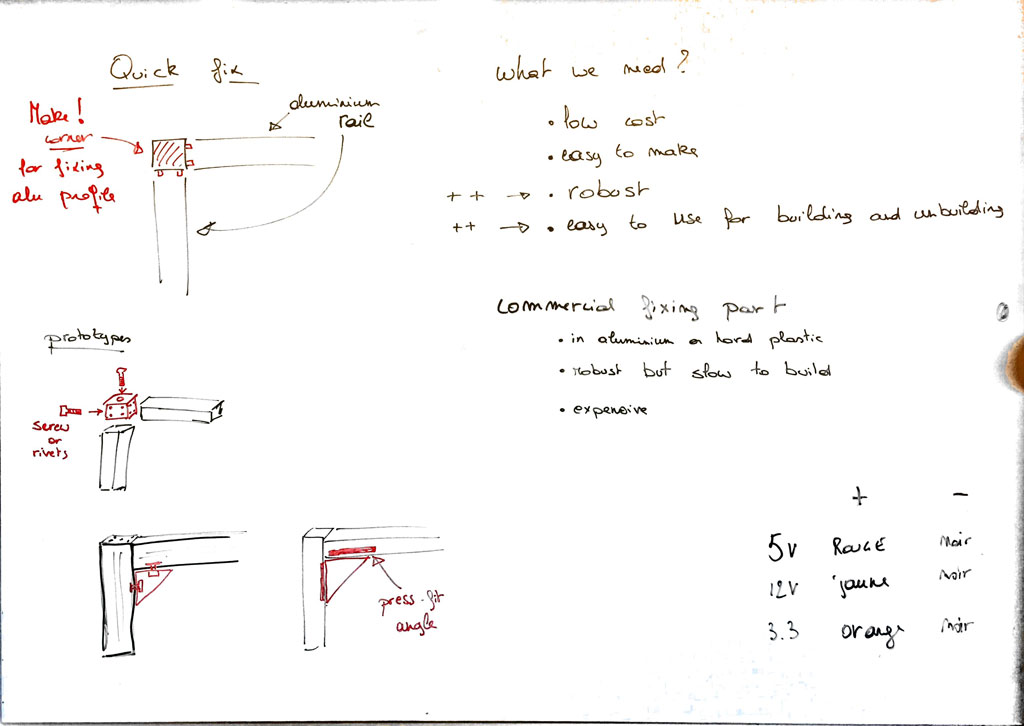 Quick fix
aluminium
rail
Make!
corner
for fixing
alu profile
prototypes
screw
or
rivets
press-fit
angle
What we need?
• low cost
• easy to make
++ → • robust
++ → • easy to use for building and unbuilding
Commercial fixing part
• in aluminium or hard plastic
• robust but slow to build
• expensive
+ -
5V ROUGE Noir
12V jaune Noir
3.3 orange Noir